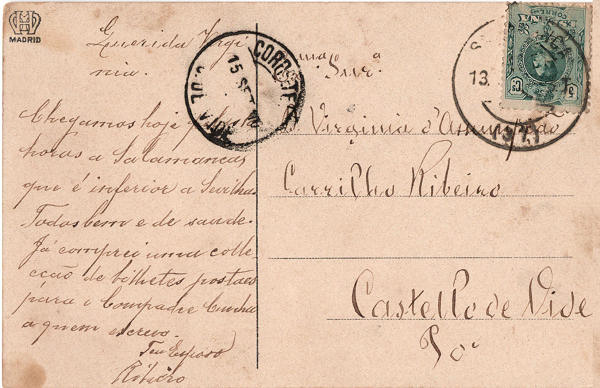 MADRID
Querida Virgi
nia.
Chegamos hoje
horas a Salamanca
que é inferior a Sevilha
Todos bem e de saude.
Já comprei uma colle
cção de bilhetes postaes
para o Compadre Cunha
a quem escrevo.
Teu Esposo
Ribeiro
15 SET
13.
Ex.ma Snr.a
D. Virginia d'Assumpção
Carrilho Ribeiro
Castello de Vide